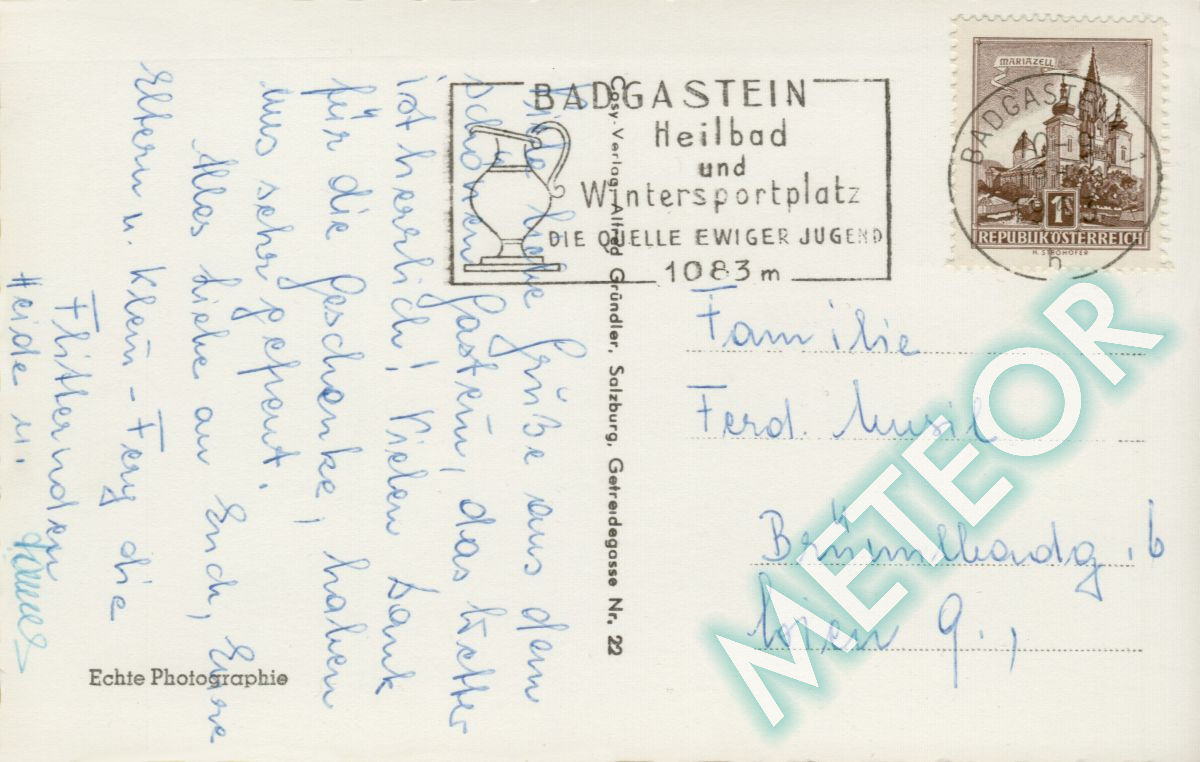 Viele liebe Grüße aus dem
schönen Gastein, das Wetter
ist herrlich! Vielen Dank
für die Geschenke, haben
uns sehr gefreut.
Alles Liebe an Euch, Eure
Eltern u. Klein-Ferry die
Flitternden
Heide u.
Cosy-Verlag Alfred Gründler, Salzburg, Getreidegasse Nr. 22
Echte Photographie
BADGASTEIN
Heilbad
und
Wintersportplatz
DIE QUELLE EWIGER JUGEND
1083 m
MARIAZELL
BADGASTEIN
1S
REPUBLIK ÖSTERREICH
H. STROHOFER
Familie
Ferd. Musil
Wien 9.,
METEOR